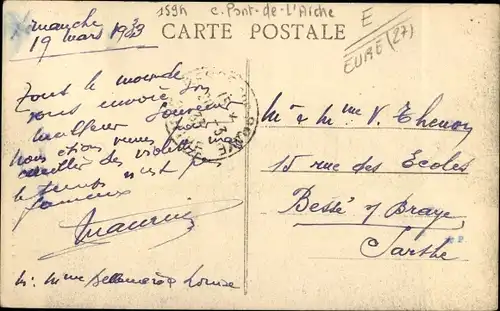 159h c. Pont-de-l'Arche
E
EURE (27)
CARTE POSTALE
Dimanche
19 mars 1933
Tout le monde
vous envoie son
meilleur souvenir
Nous étions venus pour
cueillir des violettes
le temps n'est pas
fameux
Maurice
Mr & Mme V. Thenon
15 rue des Ecoles
Bessé s/ Braye
Sarthe
Mr Mme